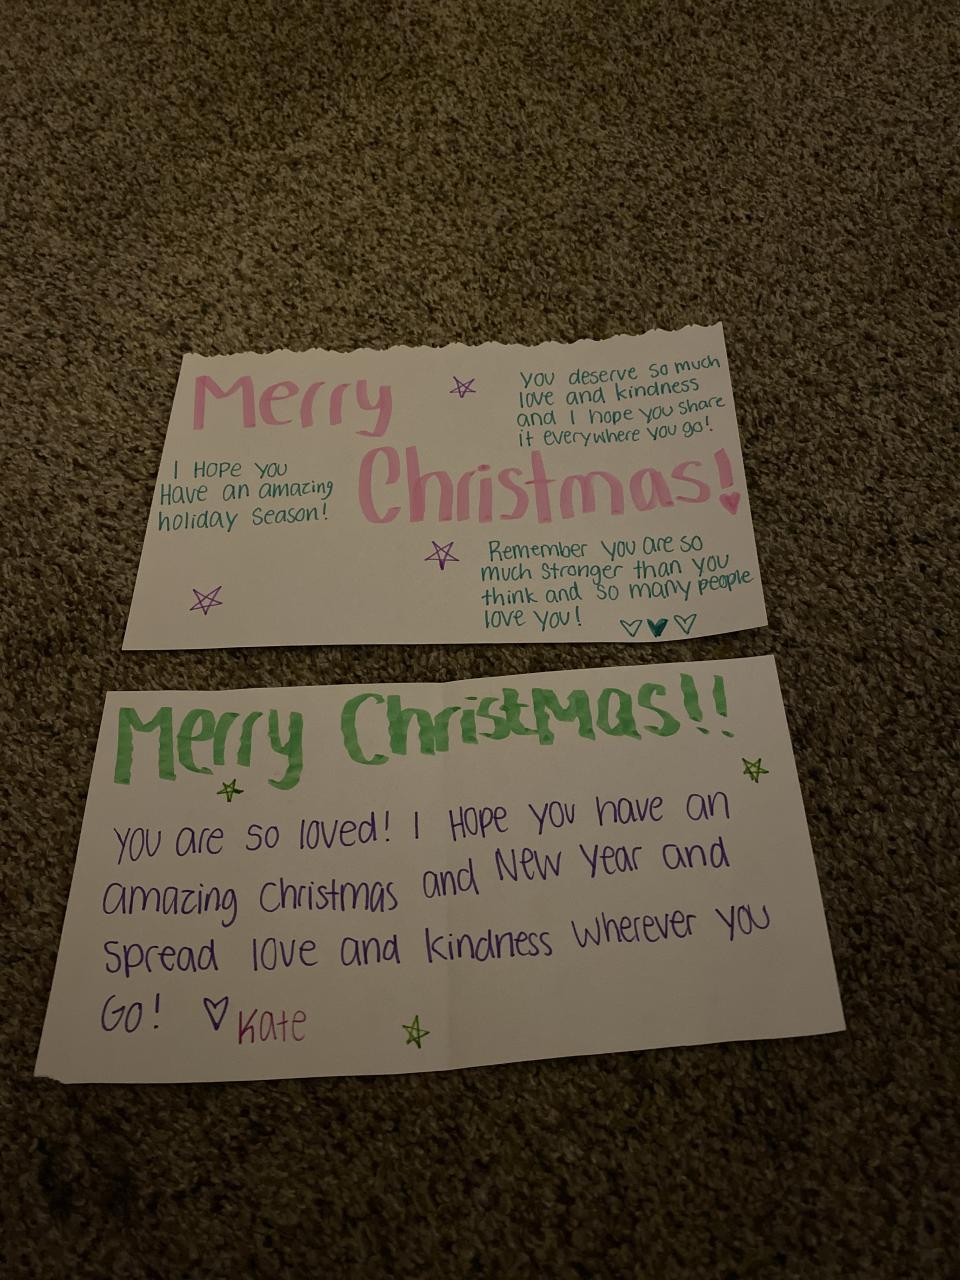 Merry
Christmas!
I HOPE YOU
Have an amazing
holiday season!
you deserve so much
love and kindness
and I hope you share
it everywhere you go!
Remember you are so
much stronger than you
think and so many people
love you!
Merry Christmas!!
you are so loved! I HOPE you have an
amazing Christmas and New Year and
spread love and kindness wherever you
Go! ♡ Kate